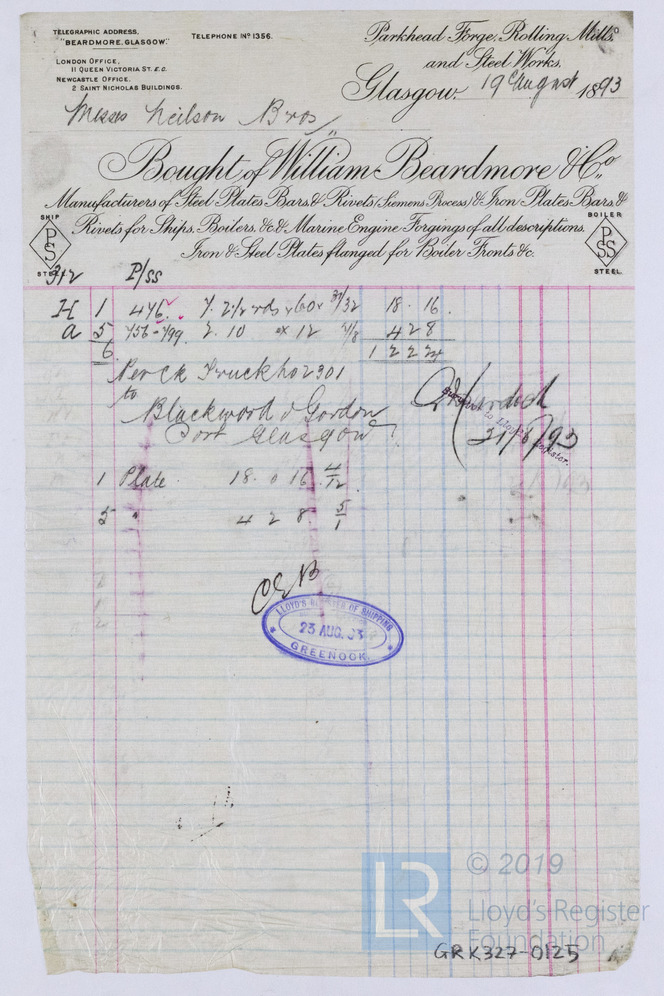 TELEGRAPHIC ADDRESS,
"BEARDMORE, GLASGOW."
TELEPHONE Nº 1356.
LONDON OFFICE,
11 QUEEN VICTORIA ST. E.C.
NEWCASTLE OFFICE,
2 SAINT NICHOLAS BUILDINGS.
Parkhead Forge, Rolling Mills,
and Steel Works.
Glasgow, 19 August 1893
Messrs Neilson Bros
Bought of William Beardmore & Co.
Manufacturers of Steel Plates Bars & Rivets (Siemens Process) & Iron Plates Bars &
Rivets for Ships, Boilers, &c & Marine Engine Forgings of all descriptions.
Iron & Steel Plates flanged for Boiler Fronts &c.
SHIP
PS
STEEL
BOILER
PSS
STEEL.
312 P/SS
H 1 476 7. 2½ 60 31/32 18 . 16
a 5 756-799 2. 10 12 4 2 8
6 1 2 2 24
Per Ck Truck no 2301
to
Blackwood & Gordon
Port Glasgow
21/8/93
Surveyor to Lloyd's Register.
1 Plate 18. 0 16 4/12
5 " 4 2 8 5/1
LLOYD'S REGISTER OF SHIPPING
23 AUG. 93
GREENOCK.
LR
© 2019
Lloyd's Register
Foundation
GRK327-0125